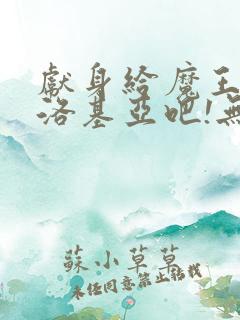 獻身給魔王
洛基亞吧!無
蘇小草草
未經同意禁止轉載